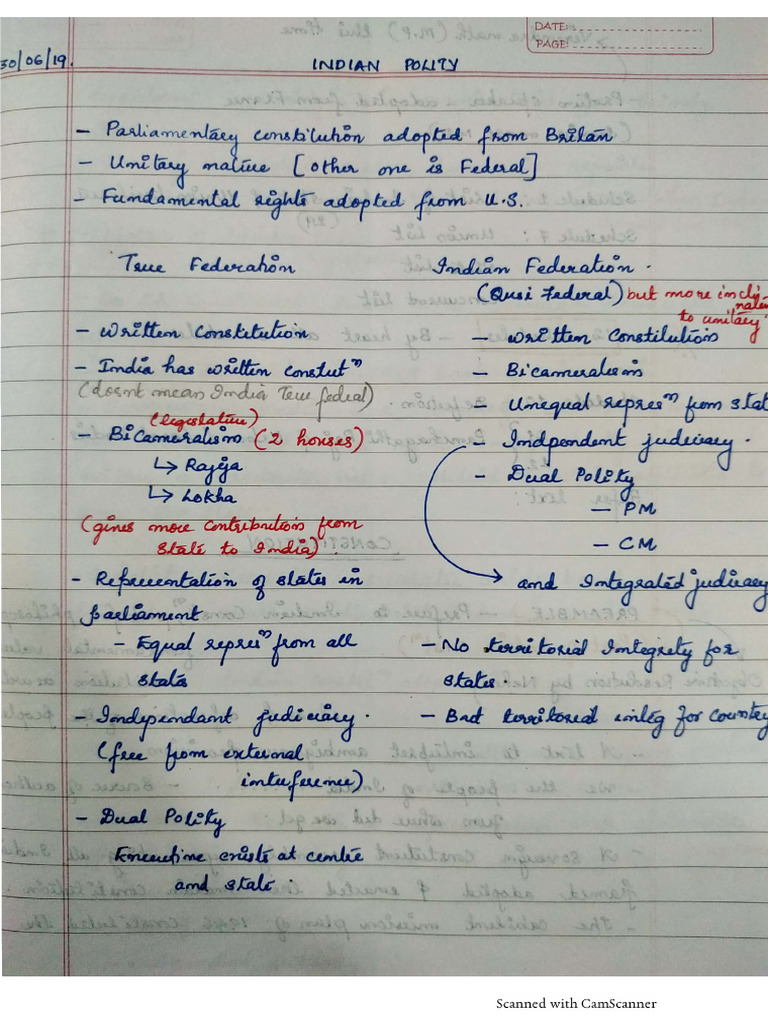 DATE:
PAGE:
30/06/19.
INDIAN POLITY
- Parliamentary constitution adopted from Britan
- Unitary nature [other one is Federal]
- Fundamental rights adopted from U.S.
True Federation
- written constitution
- India has written constutⁿ
(doesnt mean India True fedial)
(legislature)
- Bicameralism (2 houses)
↳ Rajya
↳ Lokha
(gives more contribution from
state to India)
- Representation of states in
parliament
- Equal represⁿ from all
states
- Independant judiciary.
(free from external
interference)
- Dual Polity
Executive exists at centre
and state.
Indian Federation.
(Qusi Federal) but more incli
nation
to unitary
- written constitution
- Bicameralism
- Unequal represⁿ from stat
- Indpendent judicary.
- Dual Polity
- PM
- CM
and Integrated judicary
- No territorial Integrety for
states.
- But territorial integ for country
Scanned with CamScanner